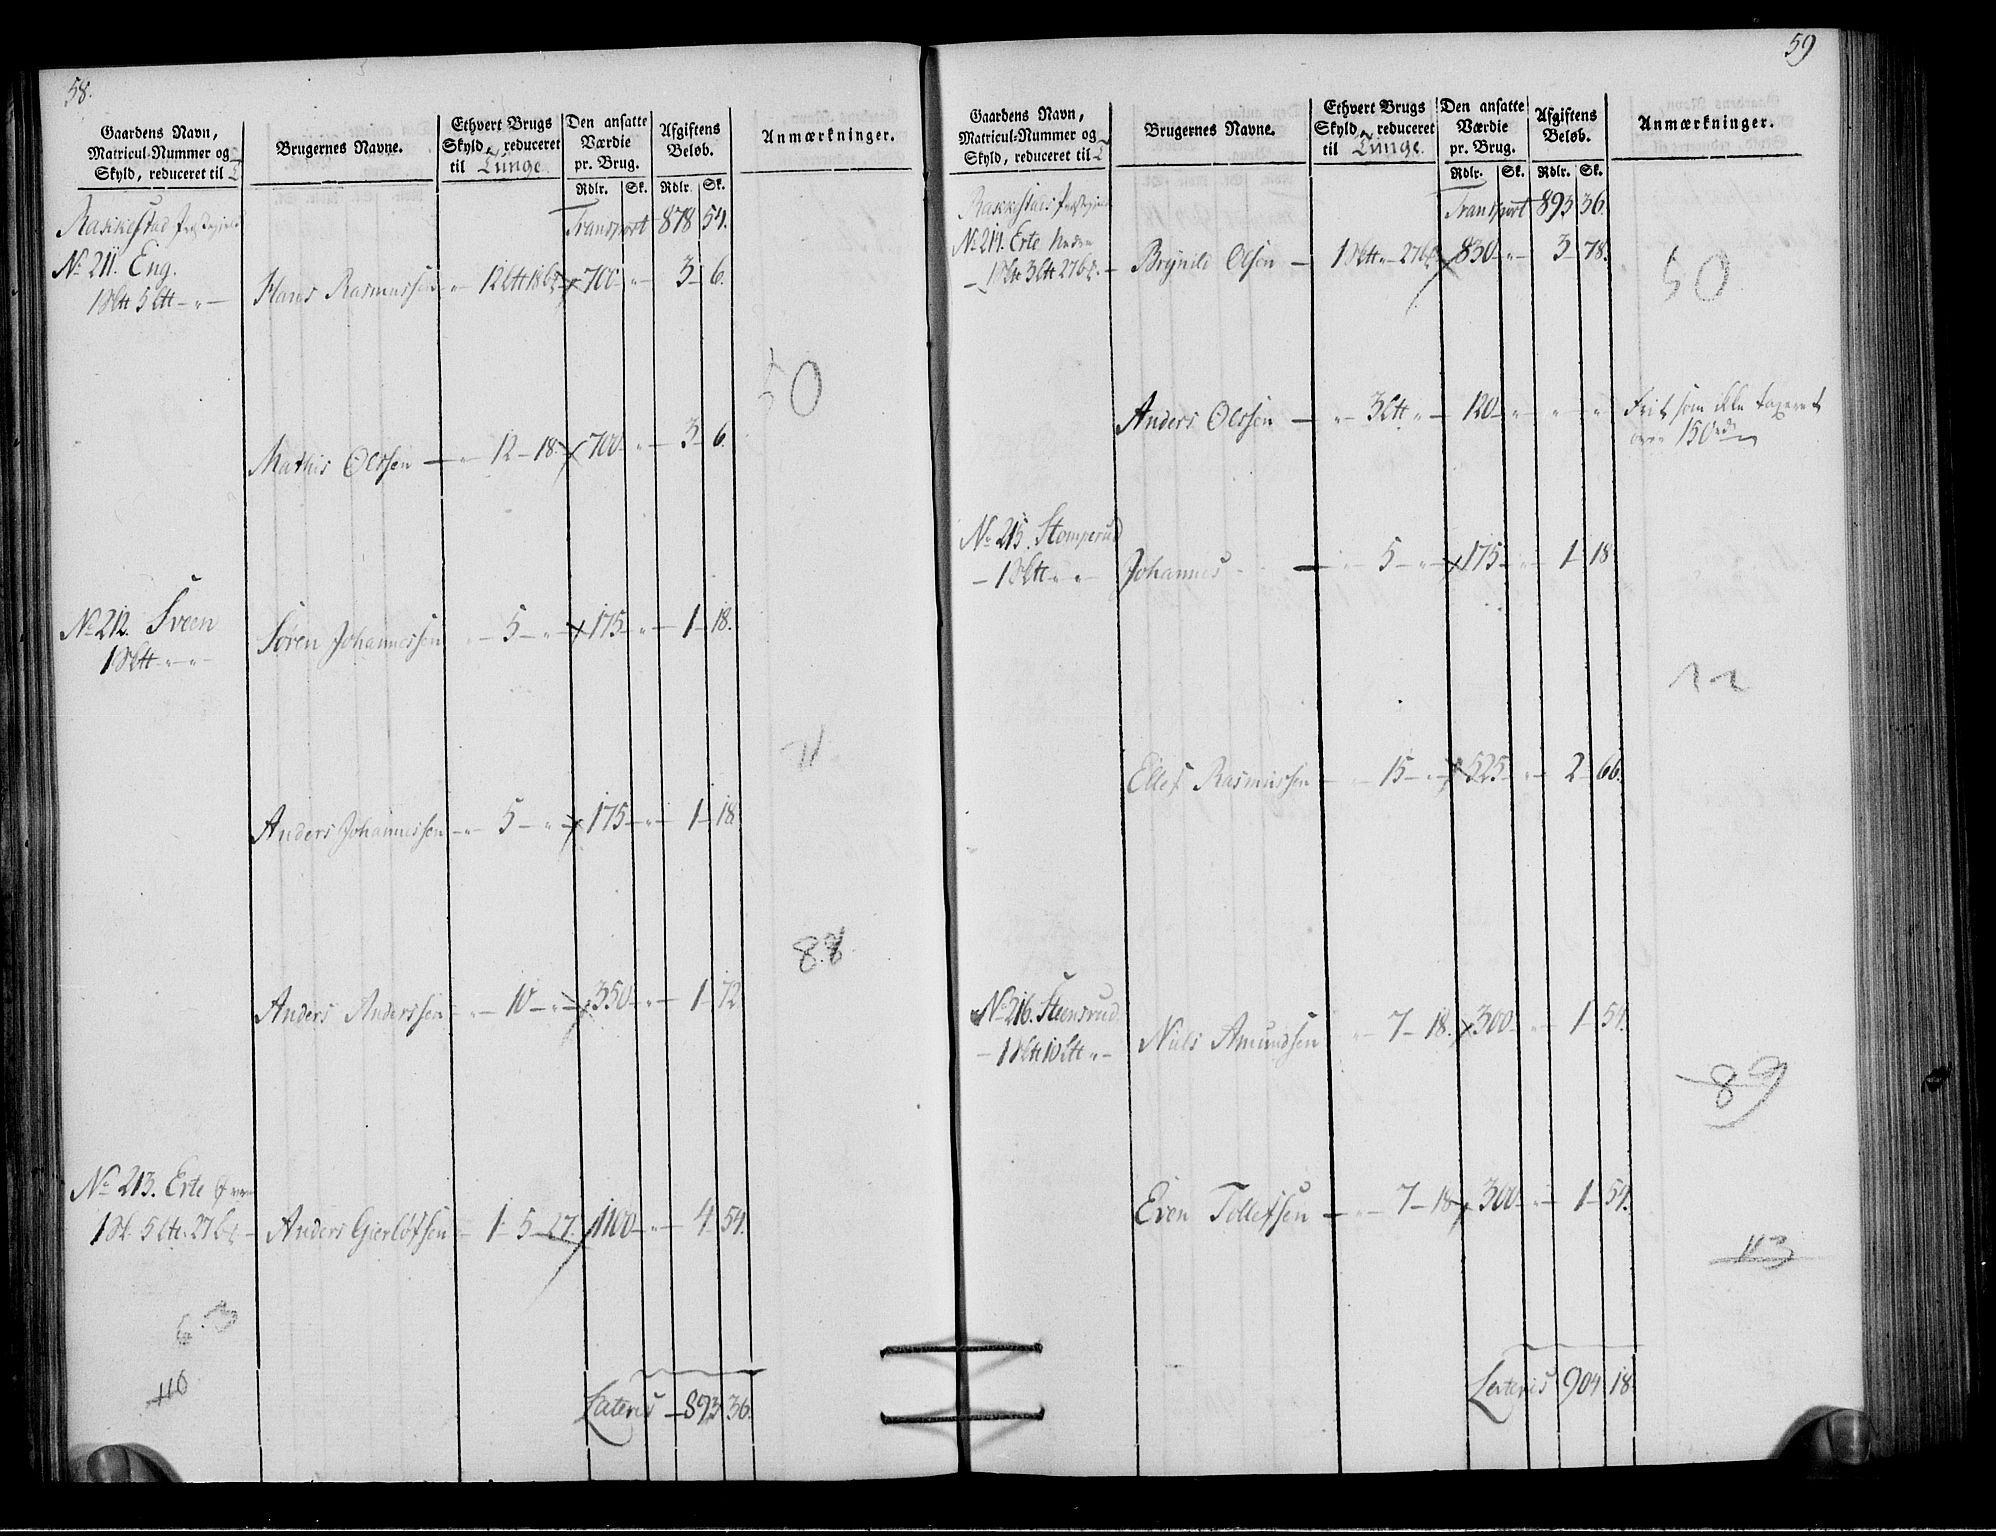 58.
Gaardens Navn, Matricul-Nummer og Skyld, reduceret til
Brugernes Navne.
Ethvert Brugs Skyld, reduceret til Tunge
Den ansatte Værdie pr. Brug.
Afgiftens Beløb.
Anmærkninger.
Rdlr. Sk. Rdlr. Sk.
Rakkestad Transport 878 54.
No 211. Eng.
Hans Rasmussen 700 3 6.
Mathis Olssen 12 18. 700 3 6.
50
No 212. Sveen
Søren Johannessen 5 175 1 18.
11
Anders Johannessen 5 175 1 18
88
Anders Anderssen 10 350 1 72
No 213. Erte
Anders Gierløfsen 1 5 27. 1100 4 54.
63
110
Lateris 893 36.
59
Gaardens Navn, Matricul-Nummer og Skyld, reduceret til
Brugernes Navne.
Ethvert Brugs Skyld, reduceret til Tunge
Den ansatte Værdie pr. Brug.
Afgiftens Beløb.
Anmærkninger.
Rdlr. Sk. Rdlr. Sk.
Transport 893 36.
No 214. Erte Nedre
Brynild Olsen 830 3 78.
50
Anders Olssen 120 Frit som ikke taxeret
over 150
No 215. Stomperud
Johannes 5 175 1 18
Ellef Rasmussen 15 525 2 66.
No 216. Steensrud
Niels Amundsen 7 18. 300 1 54.
89
Even Tollefsen 7 18 300 1 54.
113
Lateris 904 18